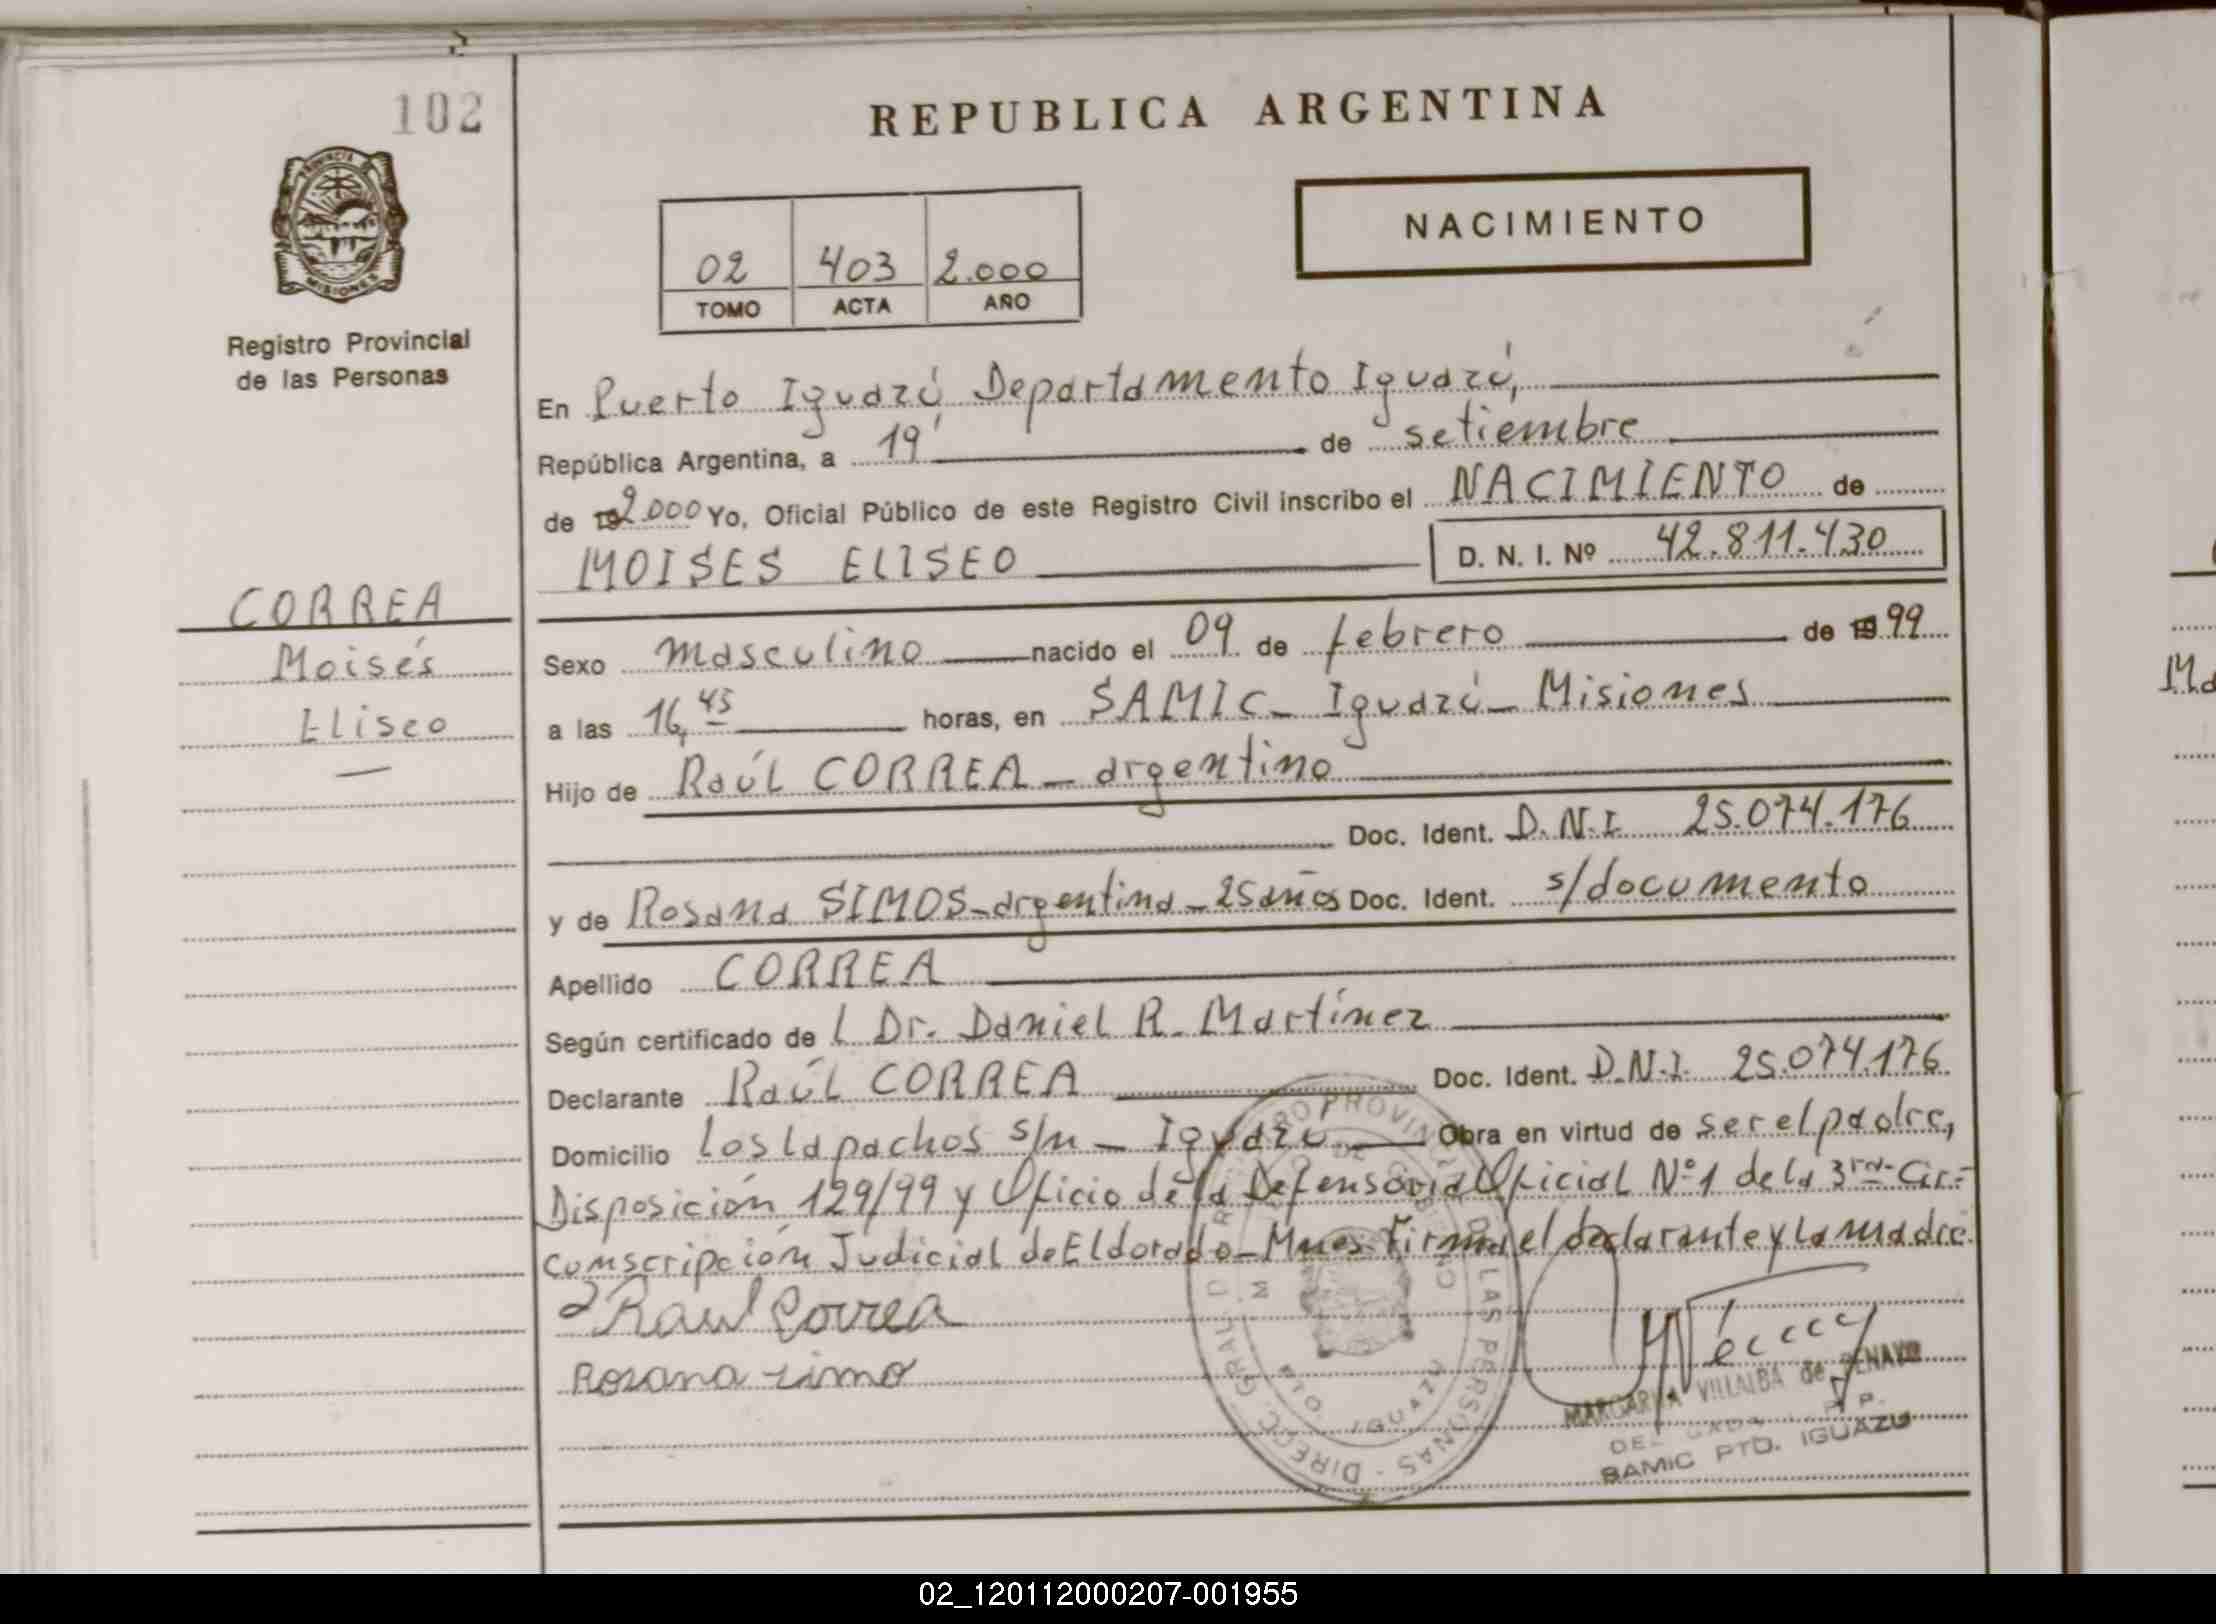 102
REPUBLICA ARGENTINA
PROVINCIA DE
MISIONES
NACIMIENTO
02 403 2.000
TOMO ACTA AÑO
Registro Provincial
de las Personas
En Puerto Iguazú, Departamento Iguazú,
República Argentina, a 19 de setiembre
de 192.000 Yo, Oficial Público de este Registro Civil inscribo el NACIMIENTO de
MOISES ELISEO D. N. I. Nº 42.811.430
CORREA
Moisés
Eliseo
Sexo masculino nacido el 09 de febrero de 1999
a las 16,45 horas, en SAMIC - Iguazú - Misiones
Hijo de Raúl CORREA - argentino
Doc. Ident. D.N.I. 25.074.176
y de Rosana SIMOS - argentina - 25 años Doc. Ident. s/documento
Apellido CORREA
Según certificado de l Dr. Daniel R. Martínez
Declarante Raúl CORREA Doc. Ident. D.N.I. 25.074.176
Domicilio Los Lapachos s/n - Iguazú Obra en virtud de ser el padre,
Disposición 129/99 y Oficio de la Defensoría Oficial Nº 1 de la 3ra Cir-
cunscripción Judicial de Eldorado - Mnes. Firma el declarante y la madre.
Raul Correa
Rosana simo
MARGARITA VILLALBA de BENAY
SAMIC PTO. IGUAZU
DIRECC. GRAL. D REGISTRO PROVINCIAL DE LAS PERSONAS
PTO. IGUAZU
02_120112000207-001955